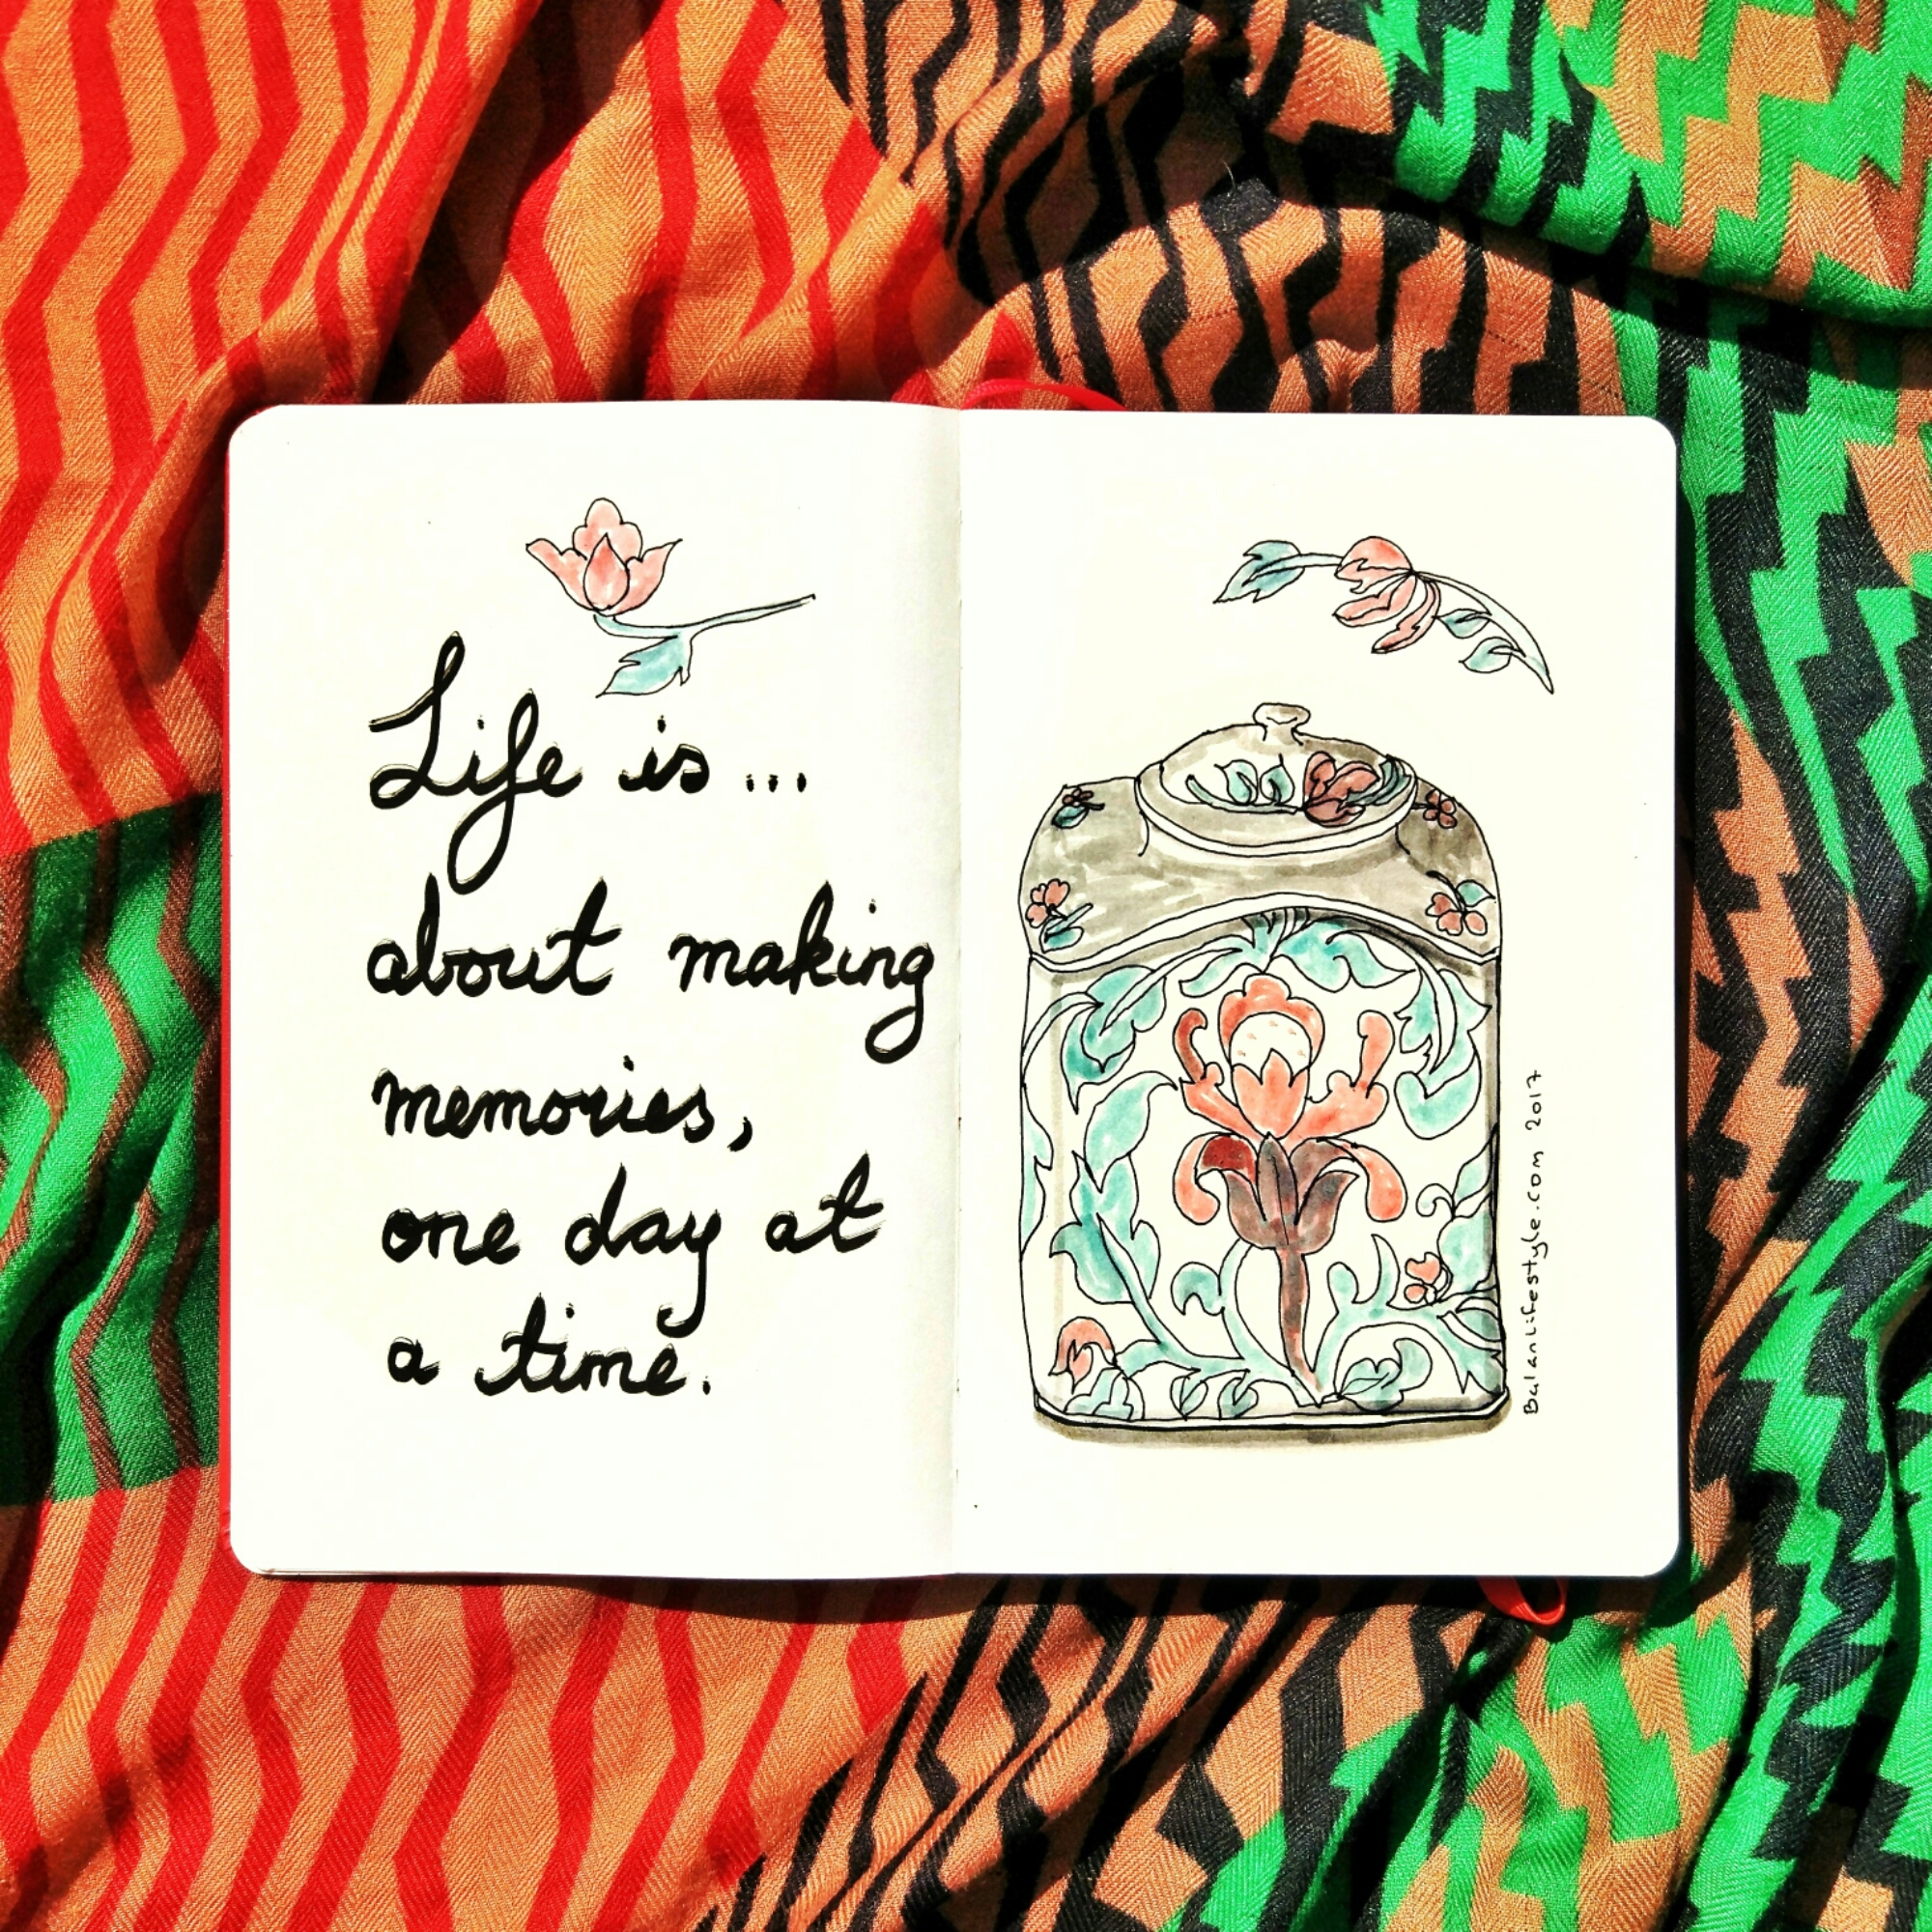 Life is...
about making
memories,
one day at
a time.
Balanlifestyle.com 2017